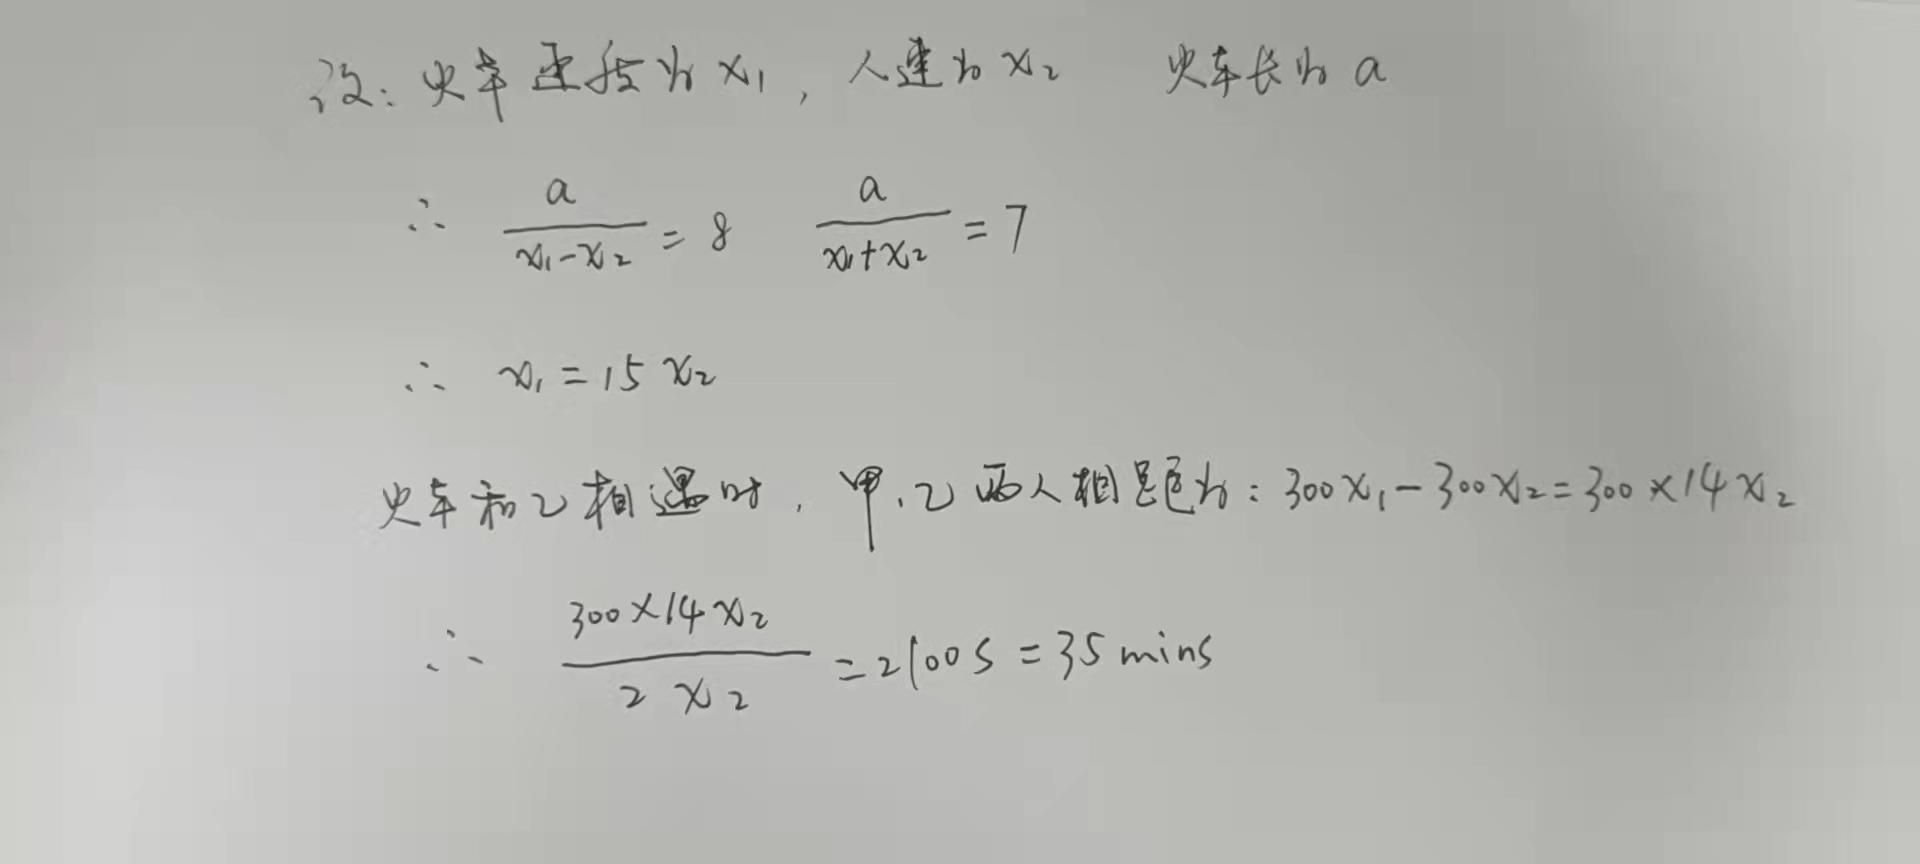 设:火车速度为 x₁,人速为 x₂ 火车长为 a
∴ a/(x₁-x₂) = 8 a/(x₁+x₂) = 7
∴ x₁ = 15 x₂
火车和乙相遇时,甲、乙两人相距为:300x₁-300x₂=300×14x₂
∴ (300×14x₂)/(2x₂) = 2100s = 35 mins